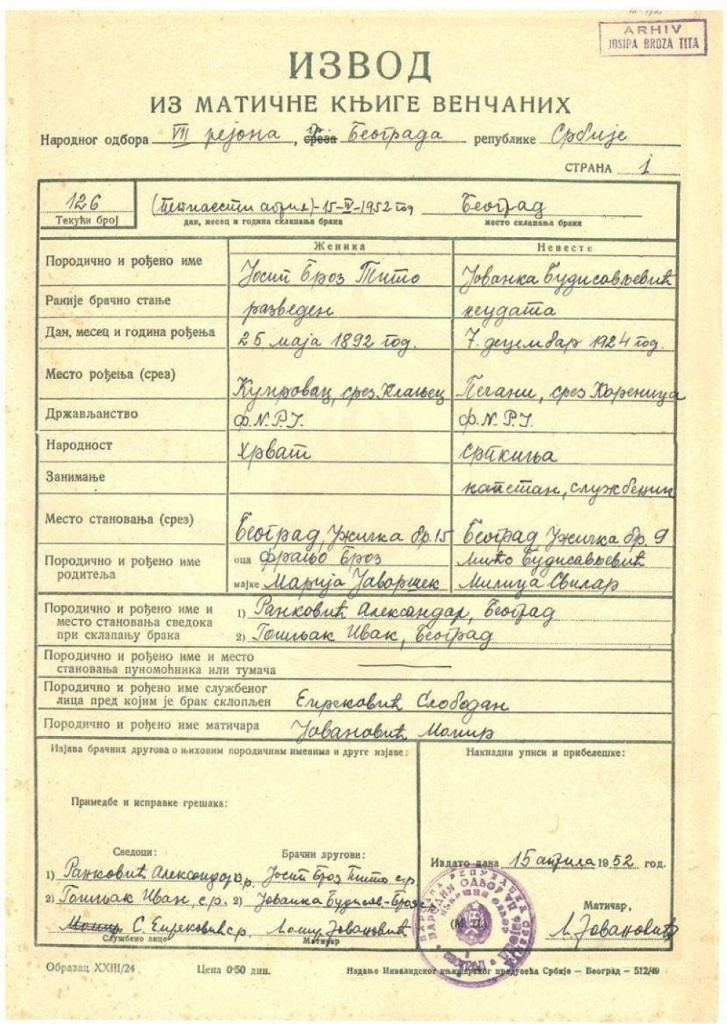 ARHIV
JOSIPA BROZA TITA
ИЗВОД
ИЗ МАТИЧНЕ КЊИГЕ ВЕНЧАНИХ
Народног одбора VII рејона, Београда републике Србије
СТРАНА 1
126 (петнаести април)-15-IV-1952 год Београд
Текући број дан, месец и година склапања брака место склапања брака
Женика Невесте
Породично и рођено име Јосип Броз Тито Јованка Будисављевић
Раније брачно стање разведен неудата
Дан, месец и година рођења 25 маја 1892 год. 7. децембар 1924 год.
Место рођења (срез) Кумровац, срез Клањец Пећани, срез Кореница
Држављанство Ф.Н.Р.Ј. Ф.Н.Р.Ј.
Народност Хрват Српкиња
Занимање капетан, службеник
Место становања (срез) Београд, Ужичка бр. 15 Београд Ужичка бр. 9
Породично и рођено име родитеља оца Фрањо Броз Мићо Будисављевић
мајке Марија Јаворшек Милица Свилар
Породично и рођено име и место становања сведока при склапању брака 1) Ранковић Александар, Београд
2) Гошњак Иван, Београд
Породично и рођено име и место становања пуномоћника или тумача
Породично и рођено име службеног лица пред којим је брак склопљен Слободан
Породично и рођено име матичара Јовановић Момир
Изјава брачних другова о њиховим породичним именима и друге изјаве: Накнадни уписи и прибелешке:
Примедбе и исправке грешака:
Сведоци: Брачни другови:
1) Ранковић Александар, Јосип Броз Тито с.р.
2) Гошњак Иван, с.р. 2) Јованка Будисав-Броз
С. с.р. Момир Јовановић
Службено лице Матичар
Издато дана 15 априла 1952 год.
Матичар,
М. Јовановић
Образац XXIII/24 Цена 0·50 дин. Издање Инвалидског књижарског предузећа Србије — Београд — 512/49